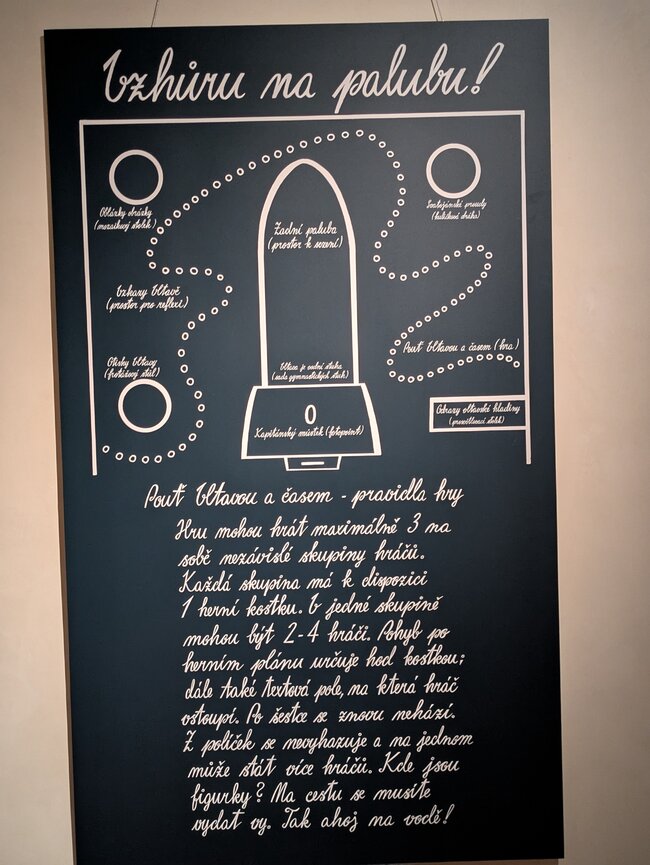 Vzhůru na palubu!
Oblázky obrázky
(mozaikový stolek)
Svatojánské proudy
(kuličková dráha)
Zadní paluba
(prostor k sezení)
Vzkazy Vltavě
(prostor pro reflexi)
Otisky Vltavy
(frotážový stůl)
Pouť Vltavou a časem (hra)
Vltava je vodní stuha
(sada gymnastických stuh)
Kapitánský můstek (fotopoint)
Odrazy vltavské hladiny
(prosvětlovací stolek)
Pouť Vltavou a časem - pravidla hry
Hru mohou hrát maximálně 3 na
sobě nezávislé skupiny hráčů.
Každá skupina má k dispozici
1 herní kostku. V jedné skupině
mohou být 2-4 hráči. Pohyb po
herním plánu určuje hod kostkou;
dále také textová pole, na která hráč
vstoupí. Po šestce se znovu nehází.
Z políček se nevyhazuje a na jednom
může stát více hráčů. Kde jsou
figurky? Na cestu se musíte
vydat vy. Tak ahoj na vodě!